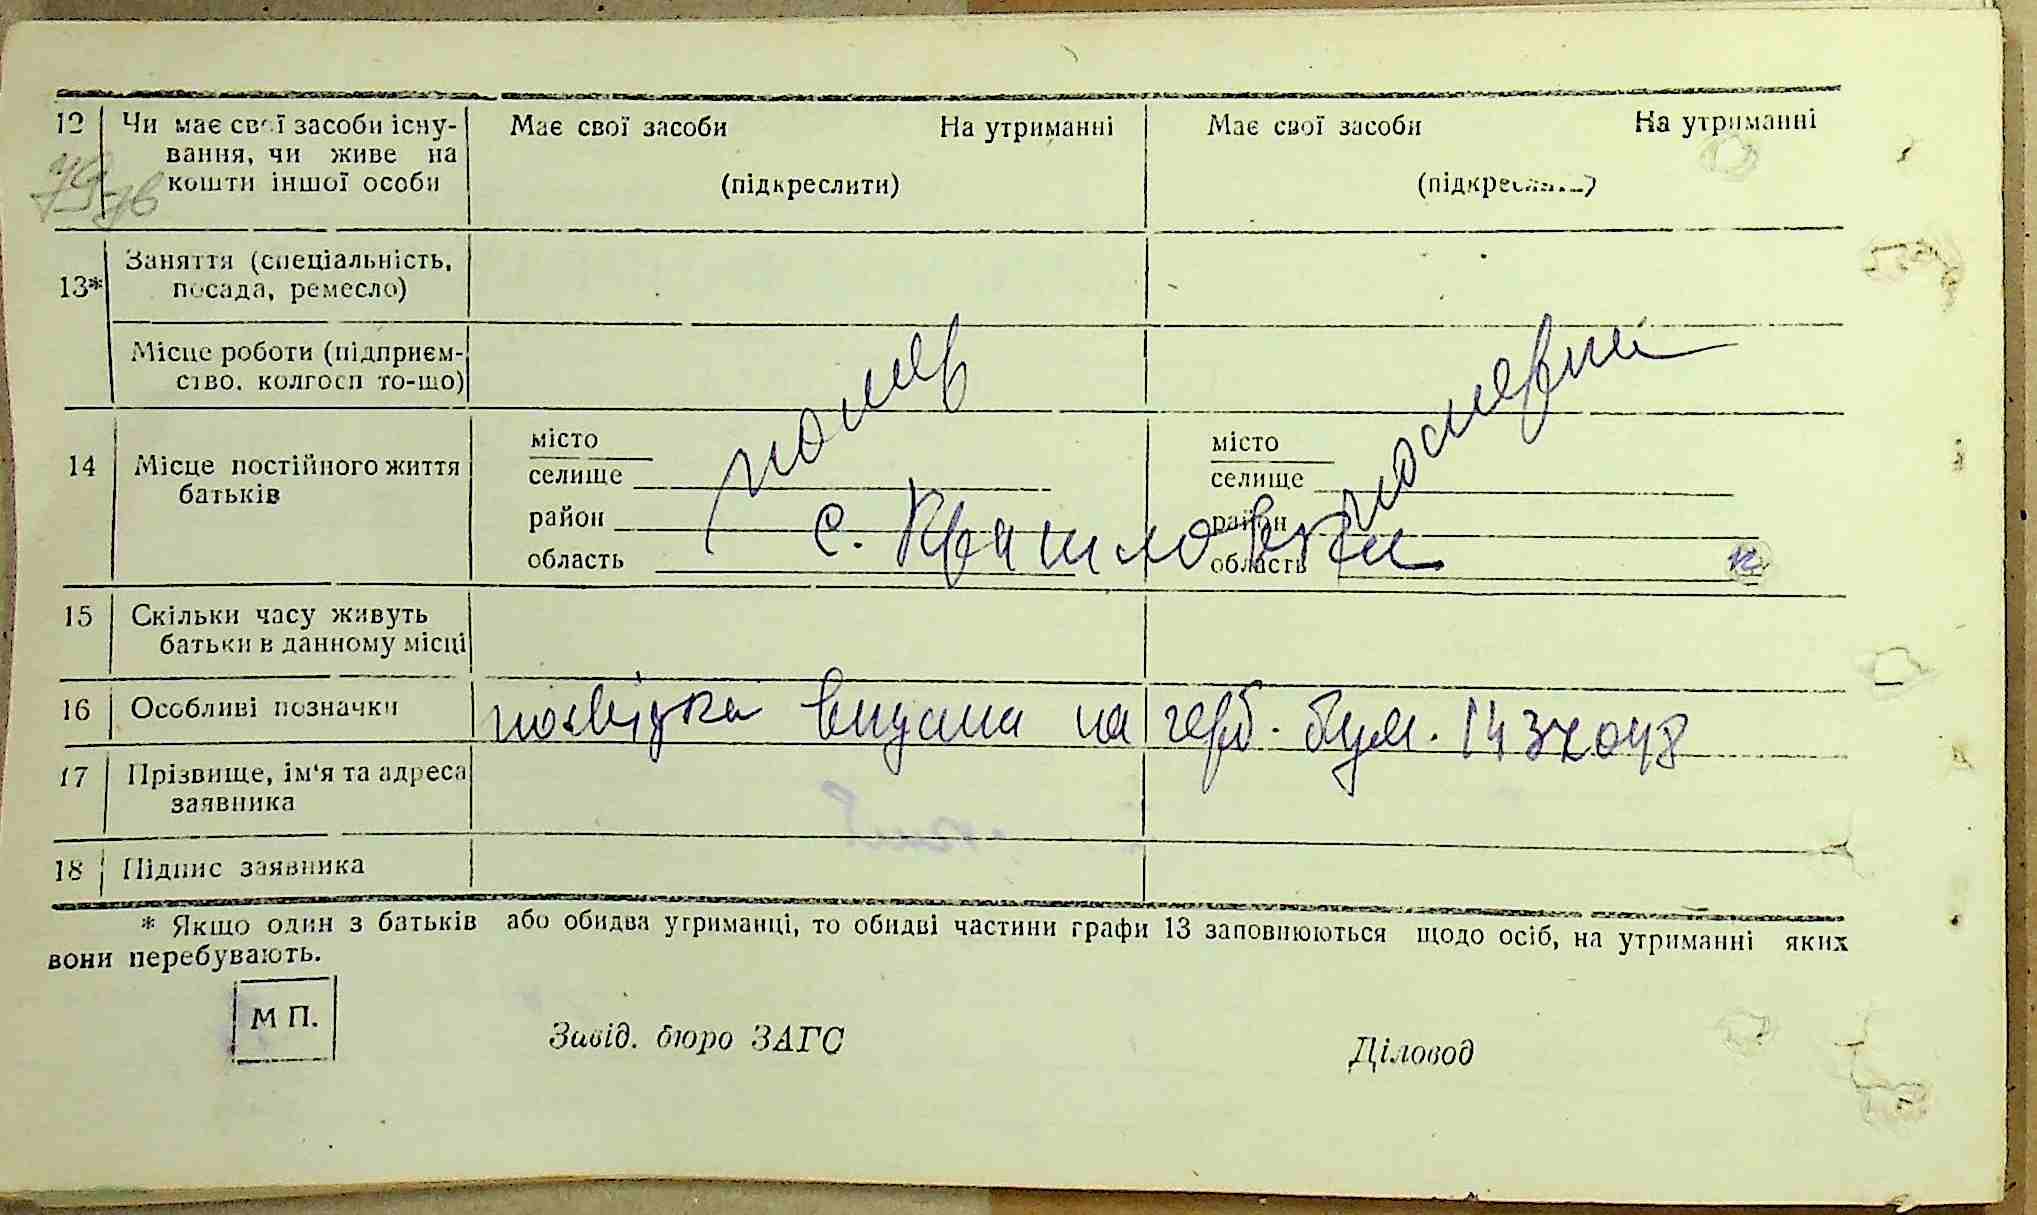 12 Чи має свої засоби існу- Має свої засоби На утриманні Має свої засоби На утриманні
вання, чи живе на
кошти іншої особи (підкреслити) (підкреслити)
13* Заняття (спеціальність,
посада, ремесло)
Місце роботи (підприєм-
ство, колгосп то-що)
помер
14 Місце постійного життя
батьків
місто місто
селище селище
район район
область область
с.
15 Скільки часу живуть
батьки в данному місці
16 Особливі позначки посвідка видана на герб. бум.
17 Прізвище, ім'я та адреса
заявника
18 Підпис заявника
* Якщо один з батьків або обидва утриманці, то обидві частини графи 13 заповнюються щодо осіб, на утриманні яких
вони перебувають.
М П. Завід. бюро ЗАГС Діловод